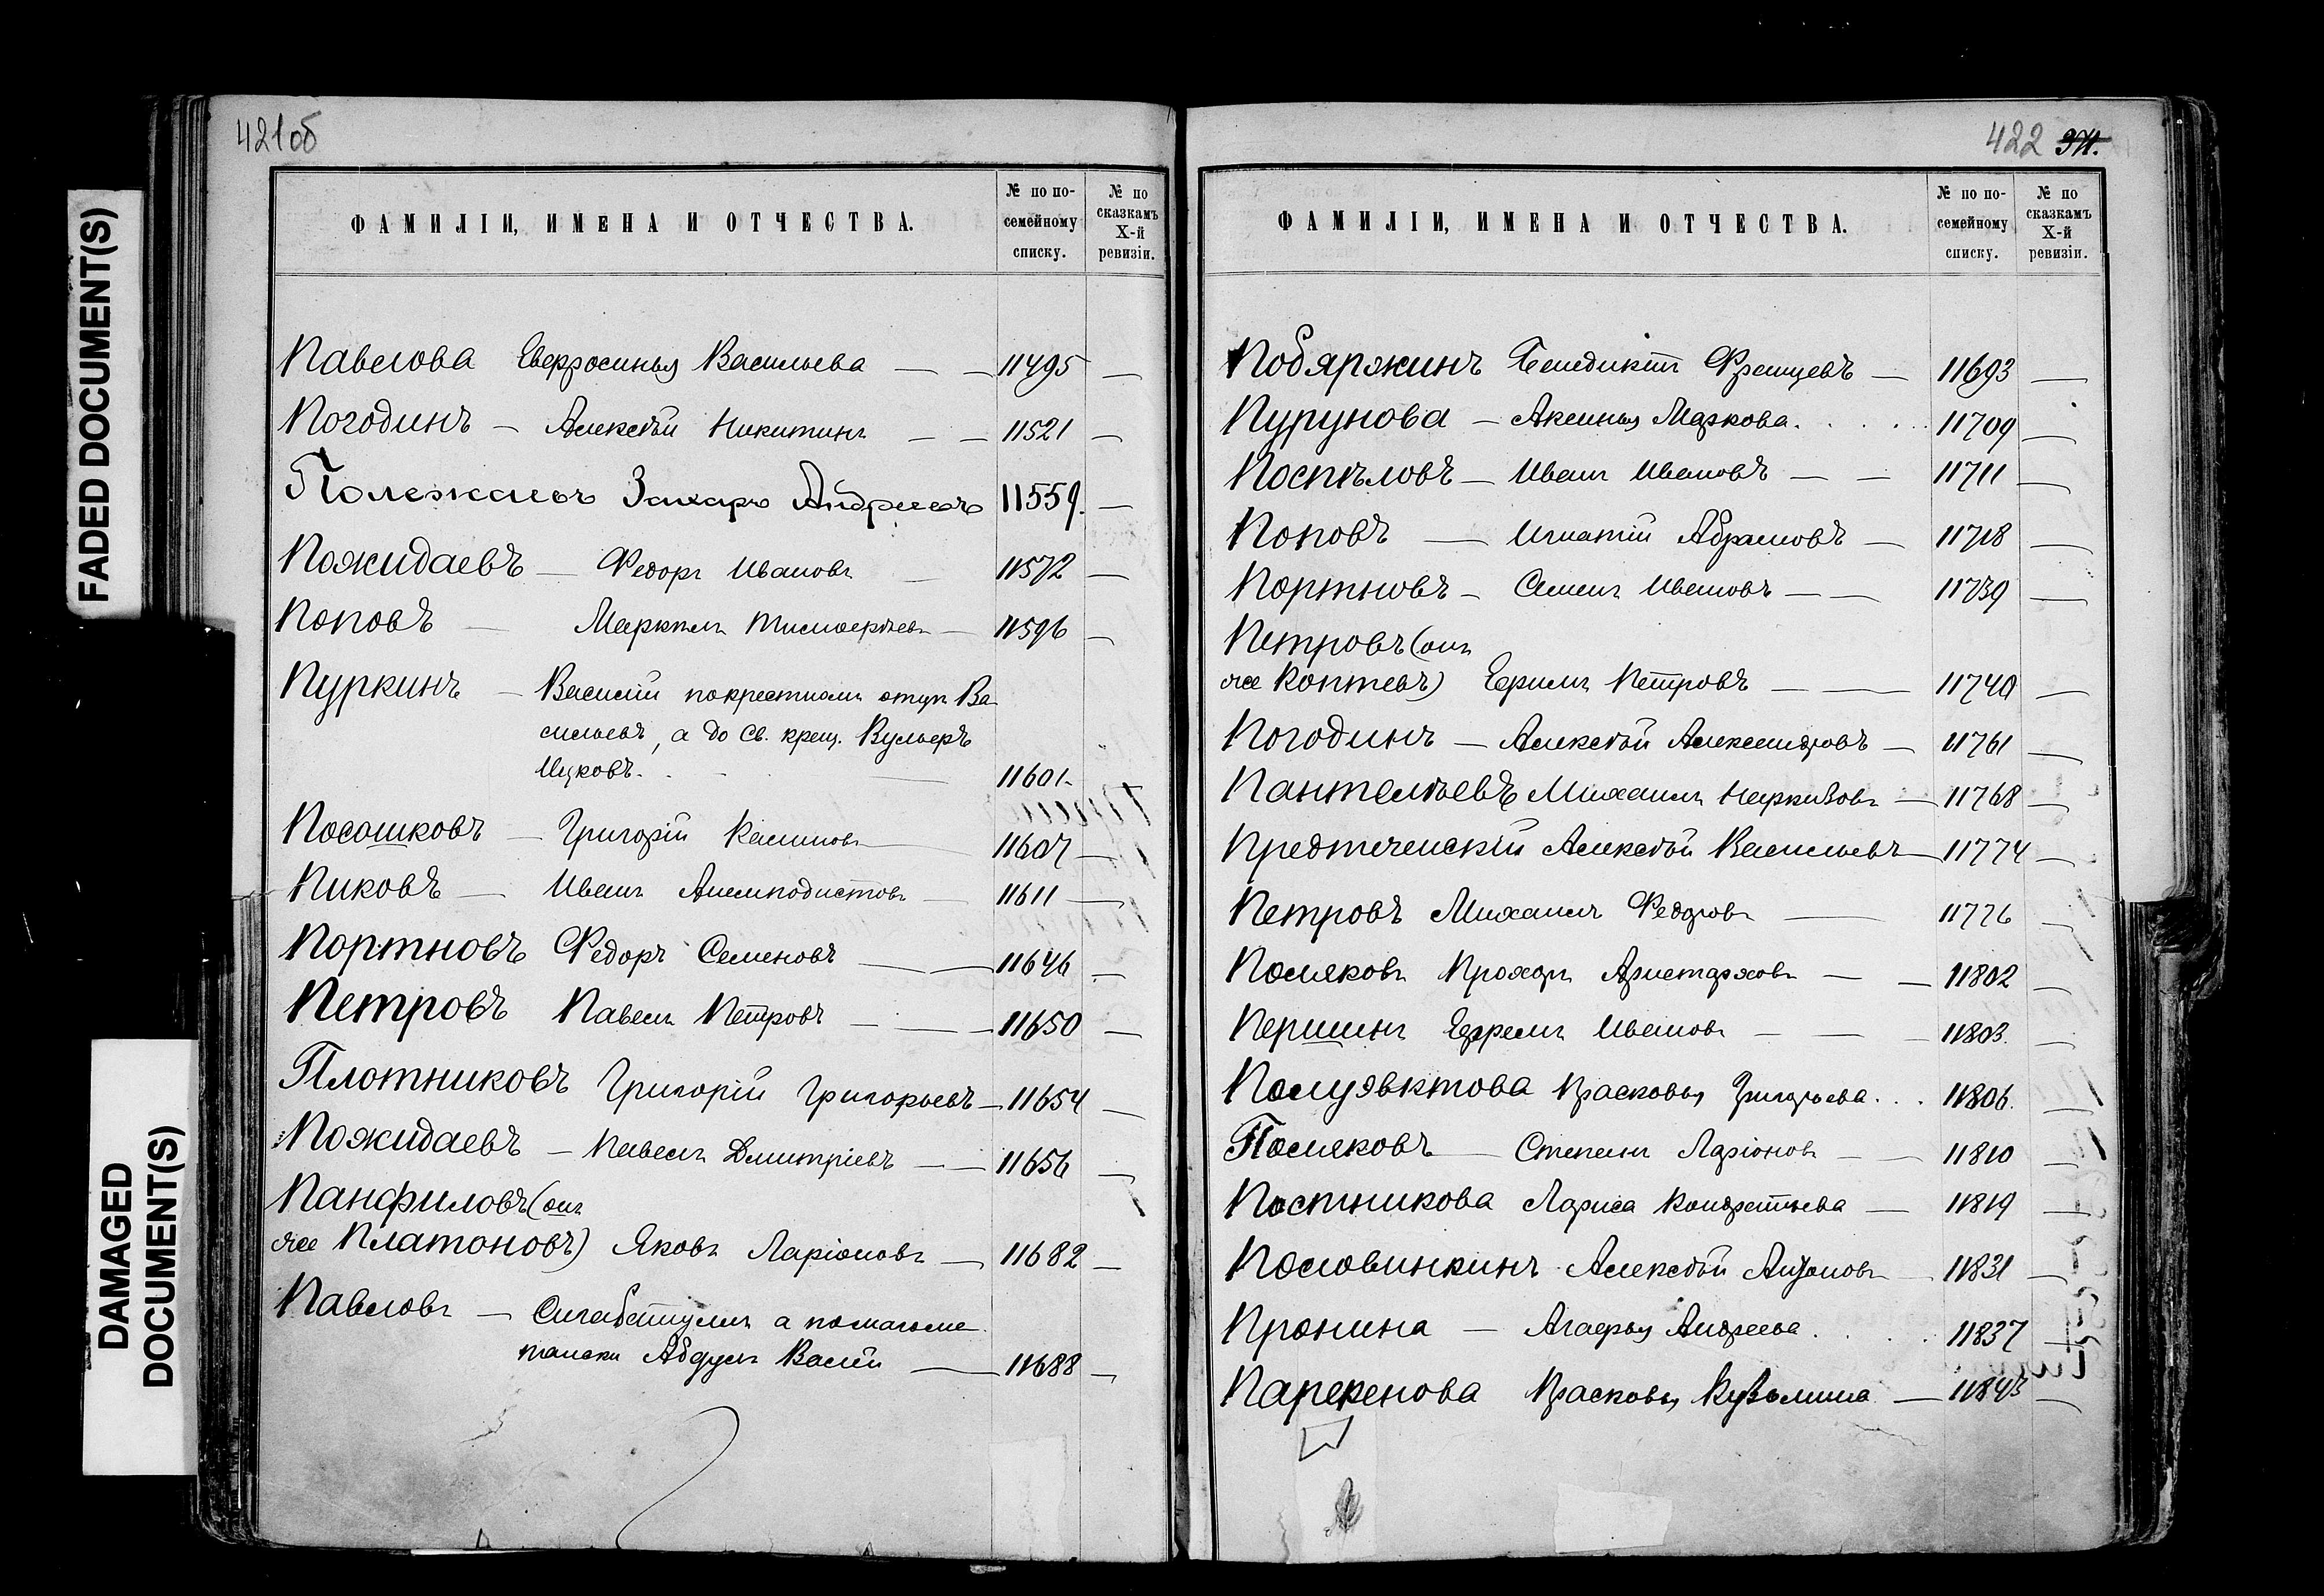 FADED DOCUMENT(S)
DAMAGED
DOCUMENT(S)
421об
ФАМИЛІИ, ИМЕНА И ОТЧЕСТВА.
№ по по-
семейному
списку.
№ по
сказкамъ
X-й
ревизіи.
Павлова Евфросинья Васильева — — 11495 —
Погодинъ — Алексѣй Никитинъ — — 11521 —
Полежаевъ Захаръ Андреевъ 11559. —
Пожидаевъ — Федоръ Ивановъ — 11572 —
Поповъ — Маркелъ Тимофѣевъ — 11596 —
Пуркинъ — Василій покрестнамъ отцу Ва
сильевъ, а до св. крещ.
11601
Посошковъ — Григорій 11607 —
Пиковъ — Иванъ Анемподистовъ — 11611 —
Портновъ Федоръ Семеновъ — — 11646 —
Петровъ Павелъ Петровъ — — 11650 —
Плотниковъ Григорій Григорьевъ — 11654 —
Пожидаевъ — Павелъ Дмитріевъ — — 11656 —
Панфиловъ (онъ
же Платоновъ) Яковъ Ларіоновъ — 11682 —
Павловъ — а помагоме
тански Абдулъ Валѣй — 11688 —
422
ФАМИЛІИ, ИМЕНА И ОТЧЕСТВА.
№ по по-
семейному
списку.
№ по
сказкамъ
X-й
ревизіи.
Побяржинъ Бенедиктъ Францевъ — 11693 —
Пурунова — Аксинья Маркова. 11709 —
Поспѣловъ — Иванъ Ивановъ — — 11711 —
Поповъ — Игнатій Абрамовъ — 11718 —
Портновъ — Семенъ Ивановъ — — 11739 —
Петровъ (онъ
же Коптевъ) Ефимъ Петровъ — — 11740 —
Погодинъ — Алексѣй Александровъ — 11761 —
Пантелѣевъ Михаилъ Наркизовъ — 11768 —
Предтеченскій Алексѣй Васильевъ — 11774 —
Петровъ Михаилъ Федоровъ — 11776 —
Поляковъ Прохоръ Аристарховъ — — 11802 —
Першинъ Ефремъ Ивановъ — — 11803. —
Полуэвктова Прасковья Григорьева . . . 11806. —
Поляковъ — Степанъ Ларіоновъ — — 11810 —
Постникова Лариса Кондратьева — 11819 —
Половинкинъ Алексѣй Антоновъ — 11831 —
Пронина — Агафья Андреева . . . 11837 —
Парекенова Прасковья Кузьмина — 11843 —